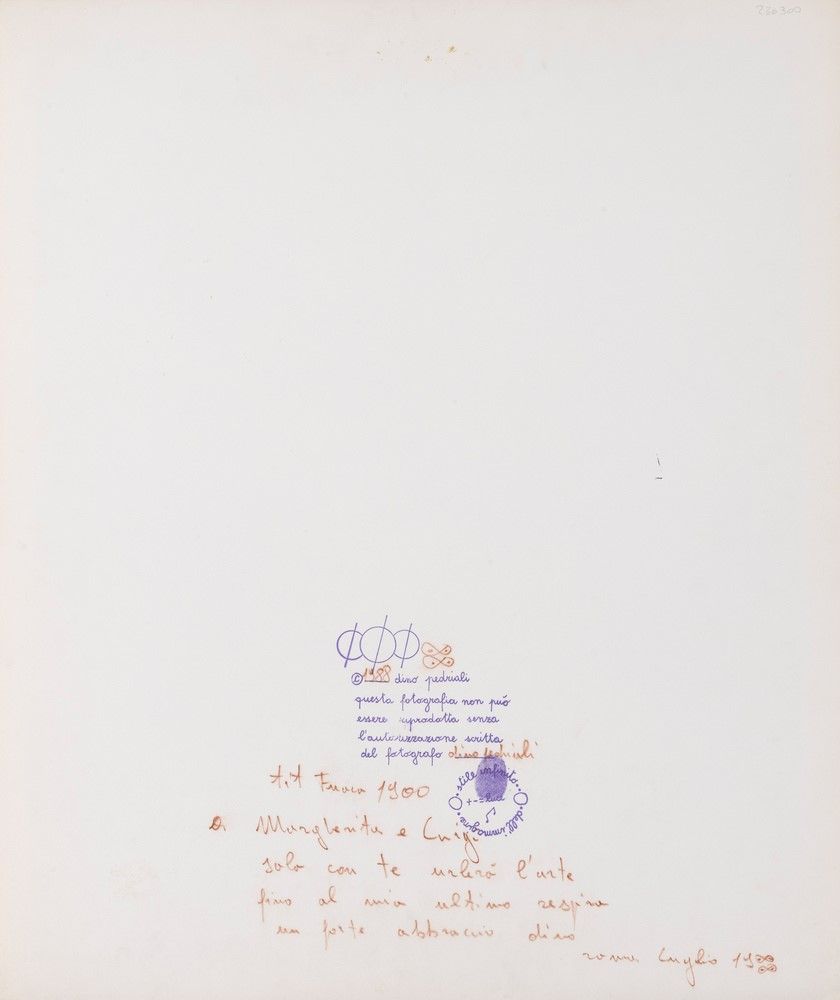 220300
© 1988 dino pedriali
questa fotografia non può
essere riprodotta senza
l'autorizzazione scritta
del fotografo dino pedriali
stile infinito dell'immagine
+-=luce
tit Fuoco 1900
a Margherita e Luigi
solo con te urlerò l'arte
fino al mio ultimo respiro
un forte abbraccio dino
roma luglio 1988